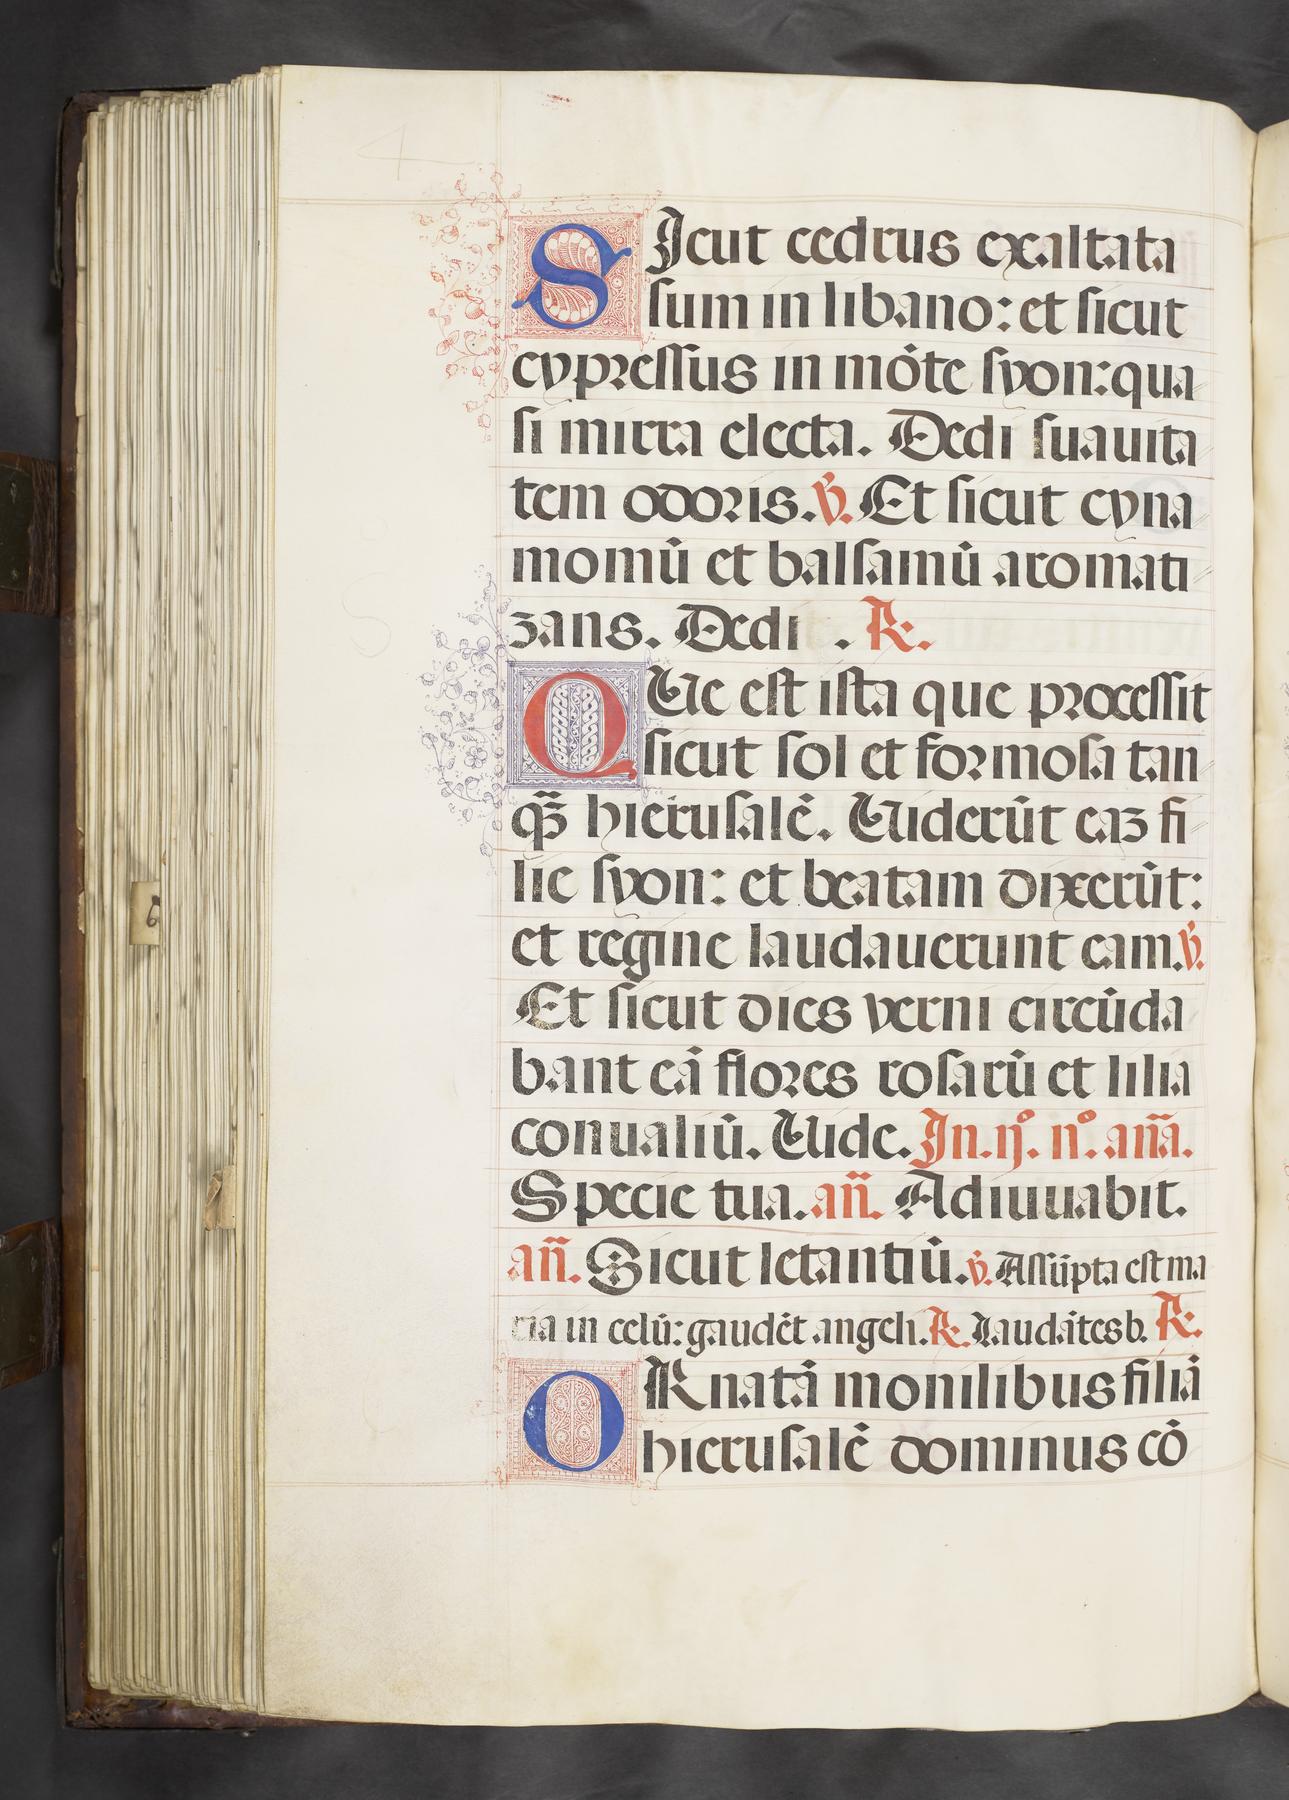 SIcut cedrus exaltata
sum in libano: et sicut
cypressus in mo᷑te syon: qua
si mirra electa. Dedi suauita
tem odoris. ℣. Et sicut cyna
momū et balsamū aromati
zans. Dedi . ℟.
QUe est ista que processit
sicut sol et formosa tan
q̄ȝ hierusalē. Uiderūt eaȝ fi
lie syon: et beatam dixerūt:
et regine laudauerunt eam. ℣.
Et sicut dies verni circūda
bant eā flores rosarū et lilia
conualiū. Uide. In .ijº. nº. añā.
Specie tua. añ. Adiuuabit.
añ. Sicut letantiū. ℣. Assūpta est ma
ria in celū: gaudēt angeli. ℟. Laudātes b. ℟.
ORnatā monilibus filiā
hierusalē dominus cō
4
6